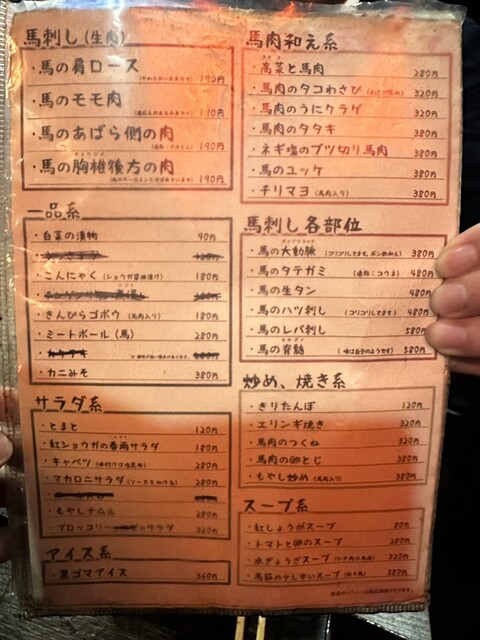 馬刺し(生肉)
・馬の肩ロース 190円
・馬のモモ肉 190円
・馬のあばら側の肉 190円
・馬の胸椎後方の肉 190円
一品系
・白菜の漬物 90円
・こんにゃく(ショウガ醤油漬け) 180円
・きんぴらゴボウ(馬肉入り) 180円
・ミートボール(馬) 280円
・カニみそ 380円
サラダ系
・とまと 120円
・紅ショウガの春雨サラダ 180円
・キャベツ 280円
・マカロニサラダ(ソースをかける) 280円
・もやしナムル 280円
・ブロッコリー のサラダ 320円
アイス系
・黒ゴマアイス 360円
馬肉和え系
・高菜と馬肉 280円
・馬肉のタコわさび 320円
・馬肉のうにクラゲ 320円
・馬肉のタタキ 380円
・ネギ塩のブツ切り馬肉 380円
・馬のユッケ 380円
・チリマヨ(馬肉入り) 380円
馬刺し各部位
・馬の大動脈(コリコリしてます。ポン酢和え) 380円
・馬のタテガミ(通称:コウネ) 480円
・馬の生タン 480円
・馬のハツ刺し(コリコリしてます) 480円
・馬のレバ刺し 580円
・馬の脊髄(味は白子のようです) 580円
炒め、焼き系
・きりたんぽ 120円
・エリンギ焼き 320円
・馬肉のつくね 320円
・馬肉の卵とじ 380円
・もやし炒め(馬肉入り) 380円
スープ系
・紅しょうがスープ 80円
・トマトと卵のスープ 280円
・水ぎょうざスープ 320円
・馬筋の少し辛いスープ 380円